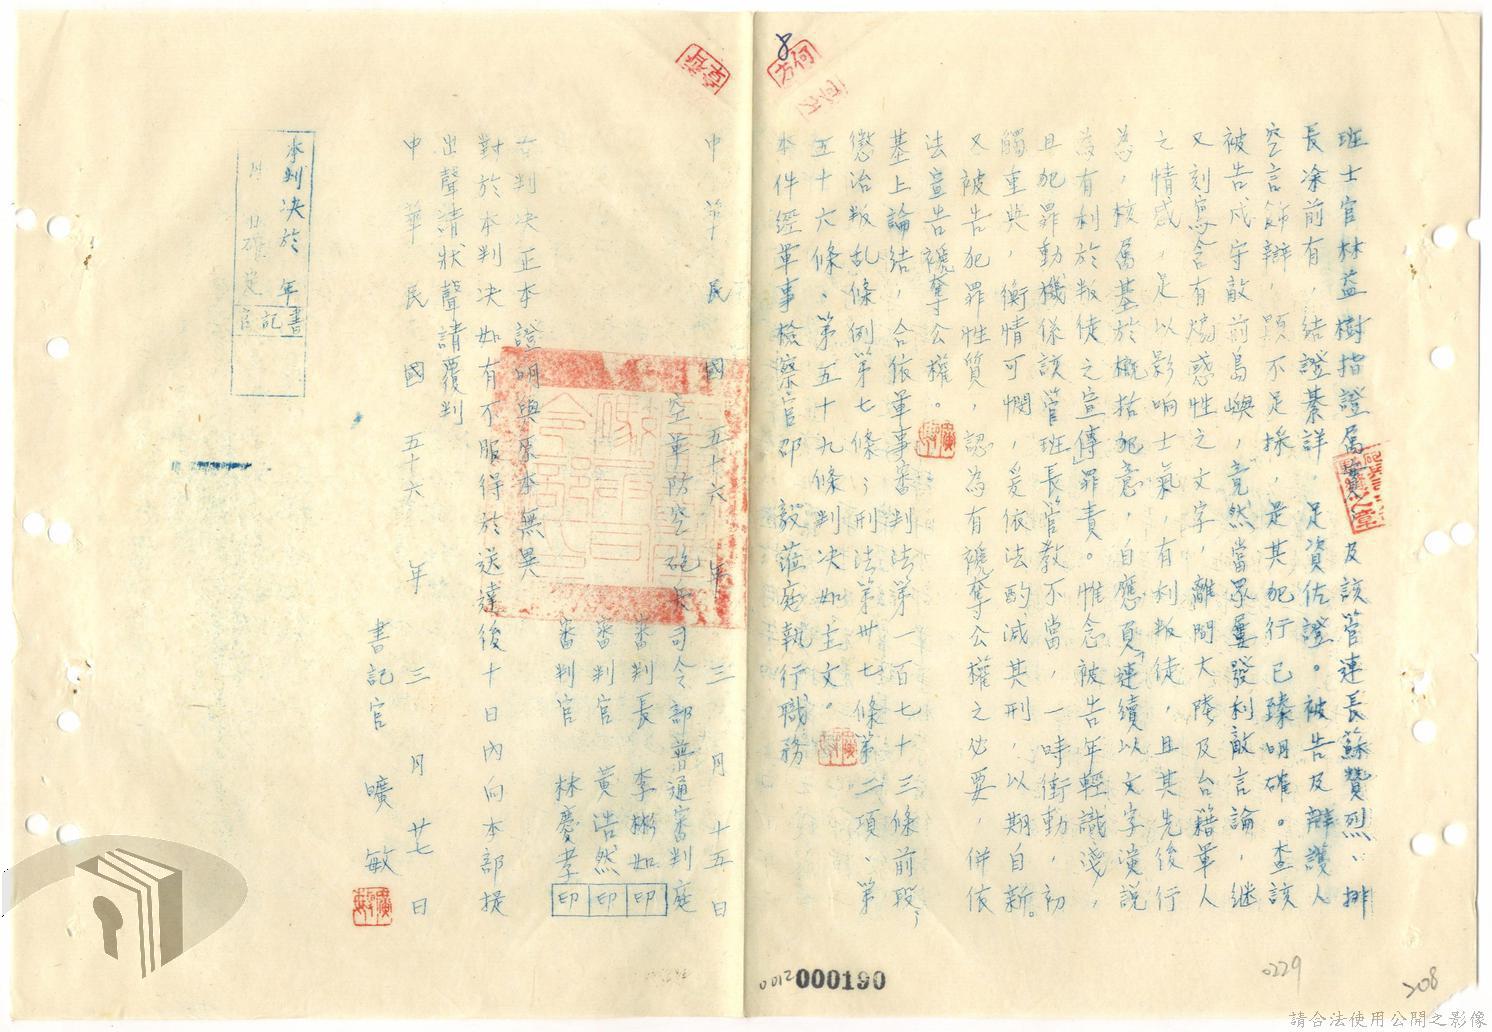 班士官林益樹指證屬實，及該管連長蘇贊烈、排
長凃前有，結證綦詳，足資佐證。被告及辯護人
空言飾辯，顯不足採，是其犯行已臻明確。查該
被告戍守敵前島嶼，竟然當眾屢發利敵言論，繼
又刻寫含有煽惑性之文字，離間大陸及台籍軍人
之情感，足以影响士氣，有利叛徒，且其先後行
為，核屬基於概括犯意，自應負「連續以文字演說
為有利於叛徒之宣傳」罪責。惟念被告年輕識淺，
且犯罪動機係該管班長管教不當，一時衝動，初
觸重典，衡情可憫，爰依法酌減其刑，以期自新。
又被告犯罪性質，認為有褫奪公權之必要，併依
法宣告褫奪公權。
基上論結，合依軍事審判法第一百七十三條前段，
懲治叛乱條例第七條；刑法第卅七條第二項、第
五十六條、第五十九條判決如主文。
本件經軍事檢察官邵　毅蒞庭執行職務
中華民國五十六年三月十五日
空軍防空砲兵司令部普通審判庭
審判長　李彬如　印
審判官　黃浩然　印
審判官　林慶孝　印
右判決正本證明與原本無異
對於本判決如有不服得於送達後十日內向本部提
出聲請狀聲請覆判
中華民國五十六年三月廿七日
書記官　曠　敏
本判決於　年
月　日確定
書記官
8
0012
000190
0229
208
請合法使用公開之影像